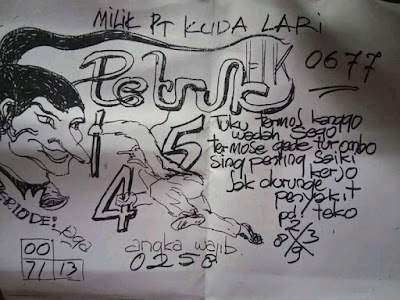 MILIK PT KUDA LARI
Petruk HK
0677
1 5
4
Tuku termos kanggo
wadah Sego
termose gede
Sing penting Saiki
kerjo
Jok durunge
penyakit
pd teko
2/3
8/9
PERIODE!
00
71 13
angka wajib
0258